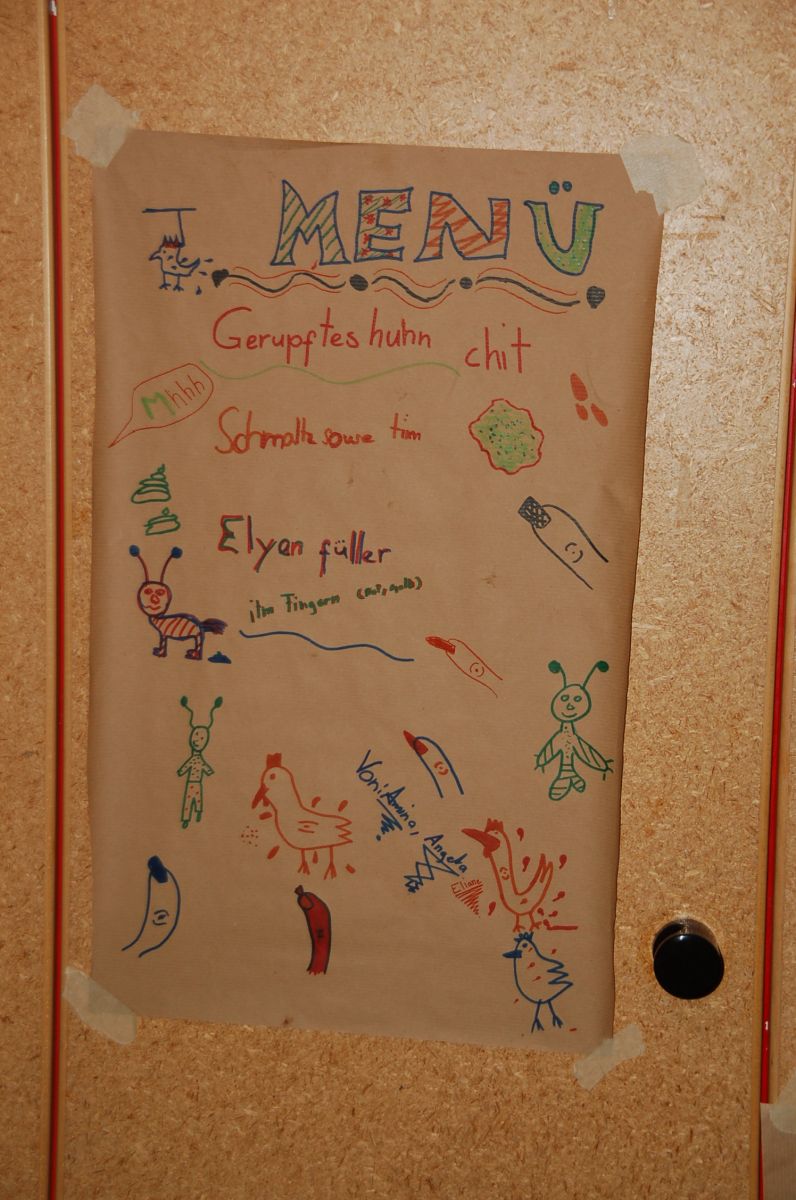 MENÜ
Gerupftes huhn chit
Mhhh
Schmaltz sowe tim
Elyen füller
itm Fingern (rot, gelb)
Von: Amina, Angela
Eliane